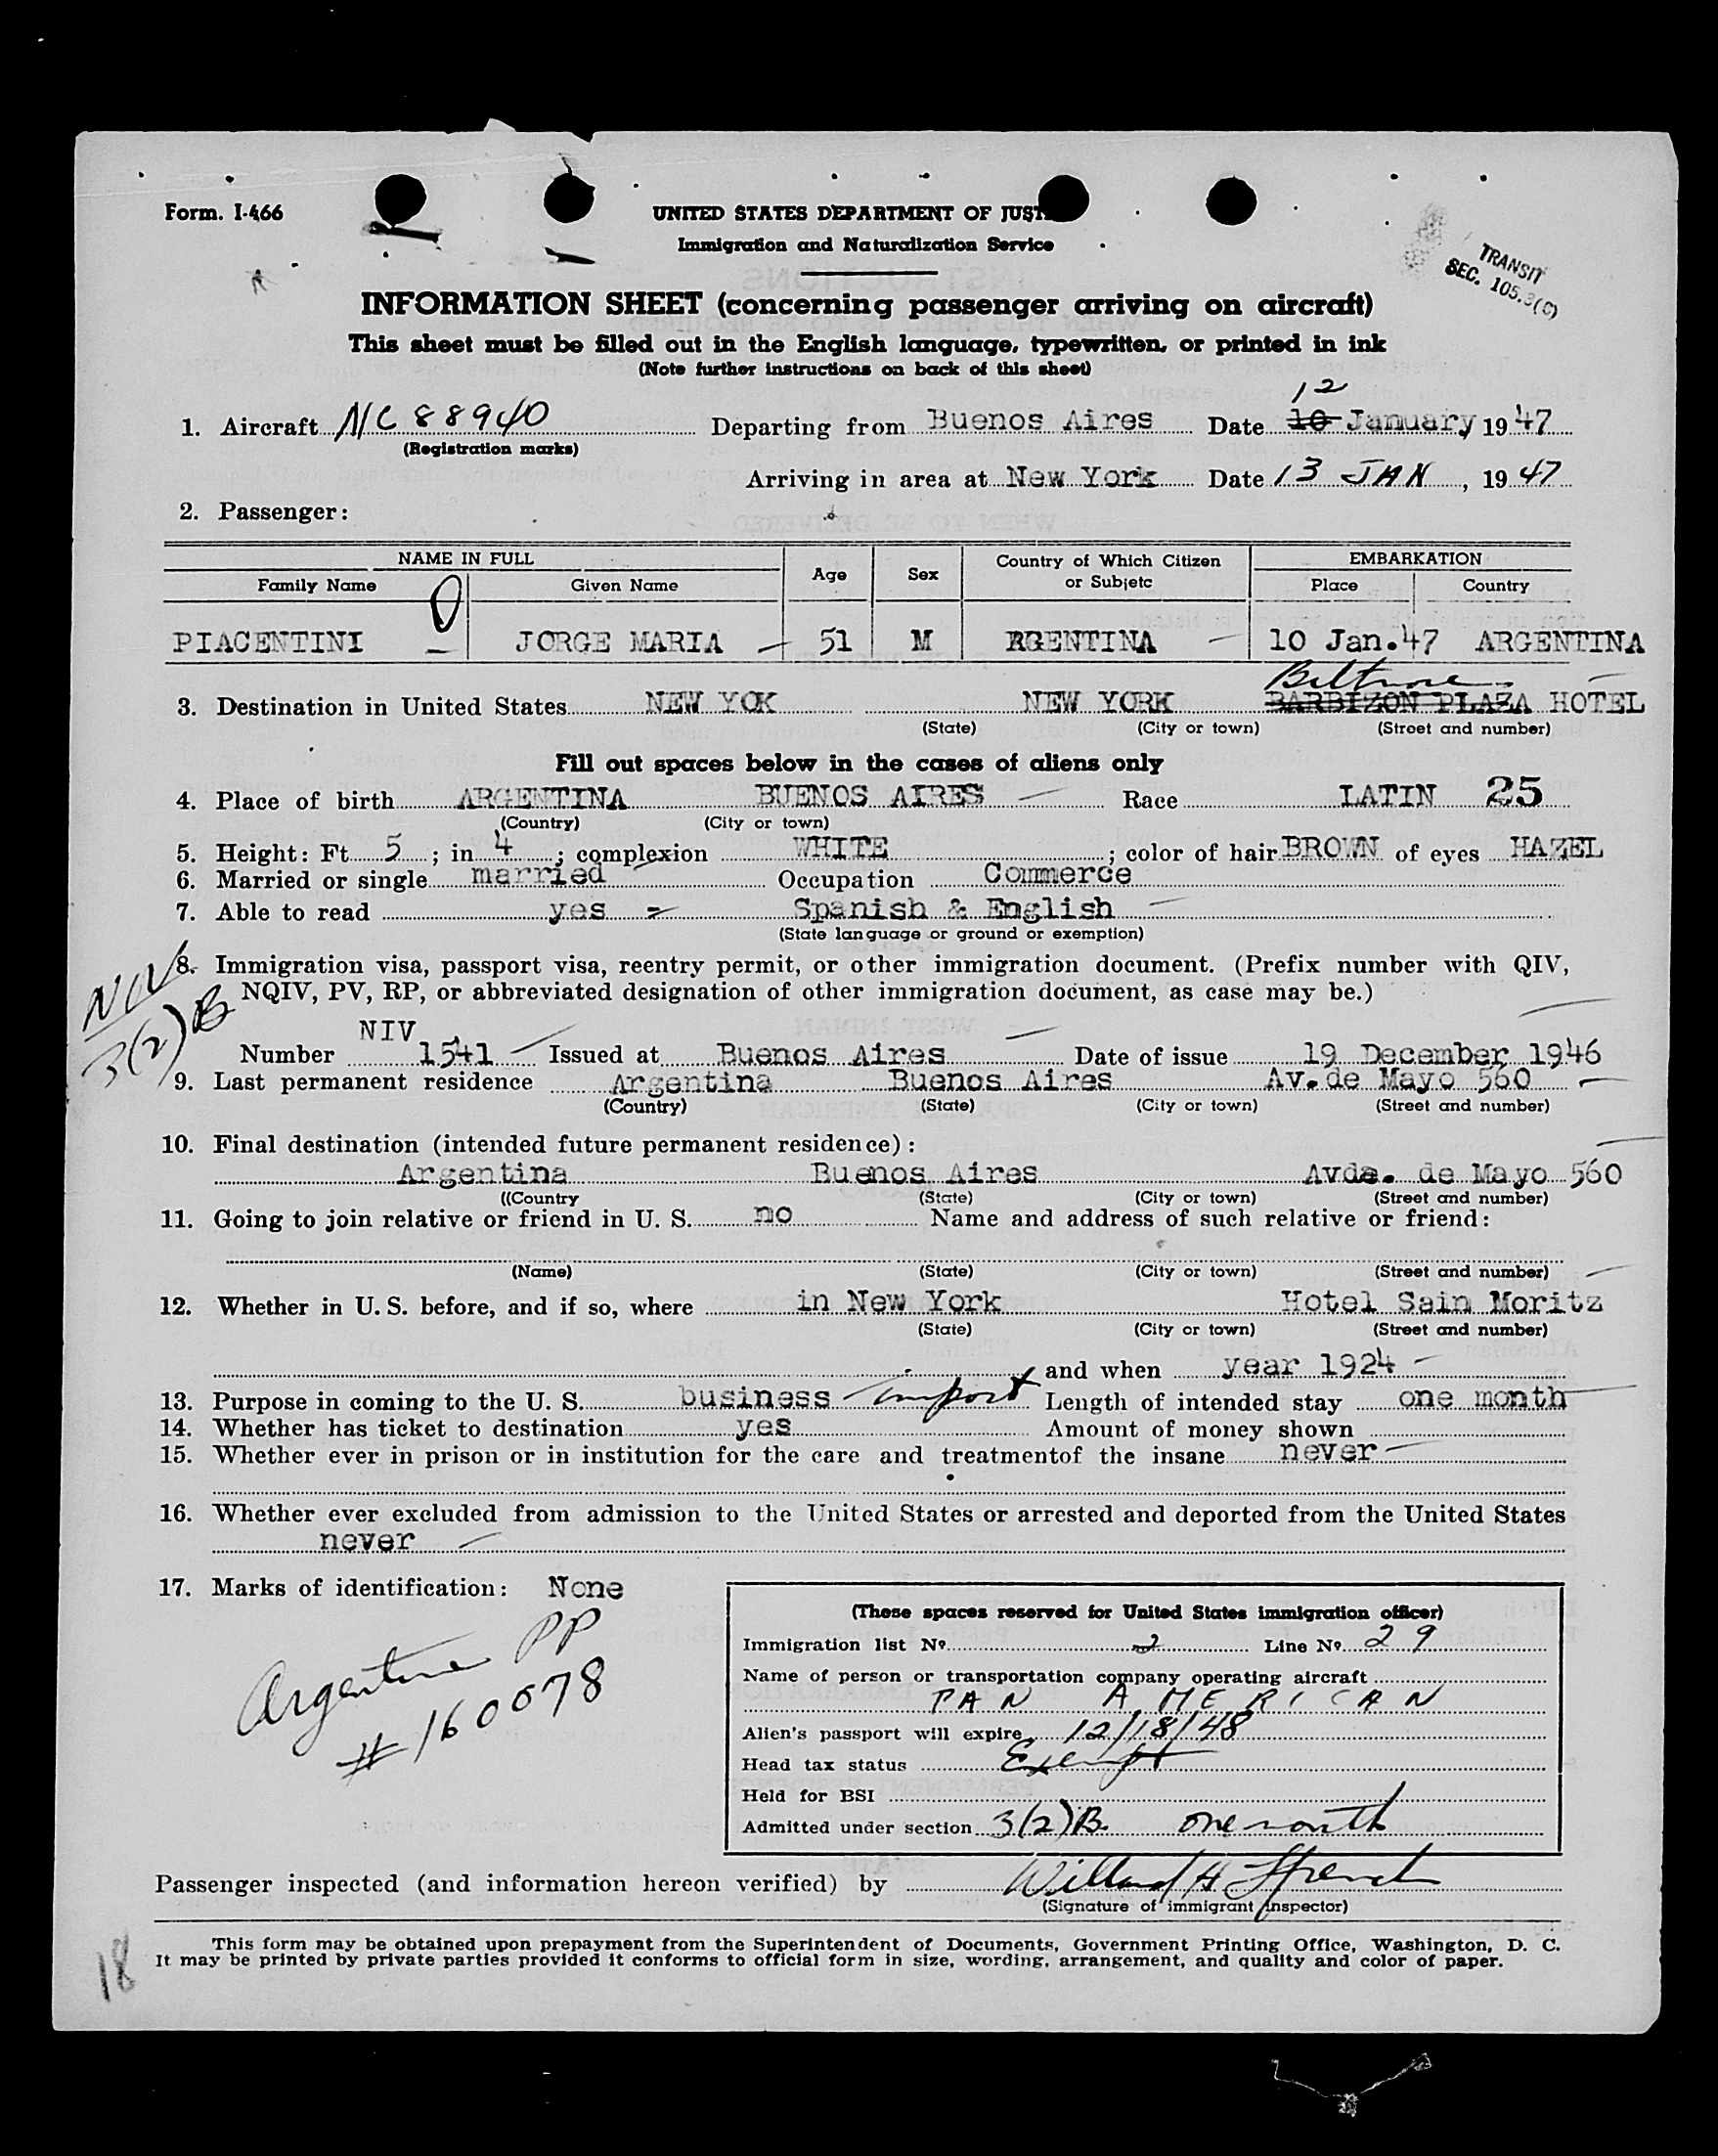 Form. I-466
UNITED STATES DEPARTMENT OF JUST
Immigration and Naturalization Service
TRANSIT
SEC. 105.3(C)
INFORMATION SHEET (concerning passenger arriving on aircraft)
This sheet must be filled out in the English language, typewritten, or printed in ink
(Note further instructions on back of this sheet)
12
1. Aircraft NC 88940 Departing from Buenos Aires Date 10 January 1947
(Registration marks)
Arriving in area at New York Date 13 JAN, 1947
2. Passenger:
NAME IN FULL Age Sex Country of Which Citizen or Subjetc EMBARKATION
Family Name Given Name Place Country
PIACENTINI JORGE MARIA 51 M RGENTINA 10 Jan.47 ARGENTINA
Biltmore
3. Destination in United States NEW YOK NEW YORK BARBIZON PLAZA HOTEL
(State) (City or town) (Street and number)
Fill out spaces below in the cases of aliens only
4. Place of birth ARGENTINA BUENOS AIRES Race LATIN 25
(Country) (City or town)
5. Height: Ft 5; in 4; complexion WHITE; color of hair BROWN of eyes HAZEL
6. Married or single married Occupation Commerce
7. Able to read yes Spanish & English
(State language or ground or exemption)
NIV
3(2)B
8. Immigration visa, passport visa, reentry permit, or other immigration document. (Prefix number with QIV,
NQIV, PV, RP, or abbreviated designation of other immigration document, as case may be.)
NIV
Number 1541 Issued at Buenos Aires Date of issue 19 December 1946
9. Last permanent residence Argentina Buenos Aires Av.de Mayo 560
(Country) (State) (City or town) (Street and number)
10. Final destination (intended future permanent residence):
Argentina Buenos Aires Avda. de Mayo 560
((Country (State) (City or town) (Street and number)
11. Going to join relative or friend in U. S. no Name and address of such relative or friend:
(Name) (State) (City or town) (Street and number)
12. Whether in U. S. before, and if so, where in New York Hotel Sain Moritz
(State) (City or town) (Street and number)
and when year 1924
13. Purpose in coming to the U. S. business import Length of intended stay one month
14. Whether has ticket to destination yes Amount of money shown
15. Whether ever in prison or in institution for the care and treatmentof the insane never
16. Whether ever excluded from admission to the United States or arrested and deported from the United States
never
17. Marks of identification: None
Argentine PP
# 160078
(These spaces reserved for United States immigration officer)
Immigration list Nº 2 Line Nº 29
Name of person or transportation company operating aircraft
PAN AMERICAN
Alien's passport will expire 12/18/48
Head tax status Exempt
Held for BSI
Admitted under section 3(2)B. one month
Passenger inspected (and information hereon verified) by Willard H
(Signature of immigrant inspector)
This form may be obtained upon prepayment from the Superintendent of Documents, Government Printing Office, Washington, D. C.
It may be printed by private parties provided it conforms to official form in size, wording, arrangement, and quality and color of paper.
18